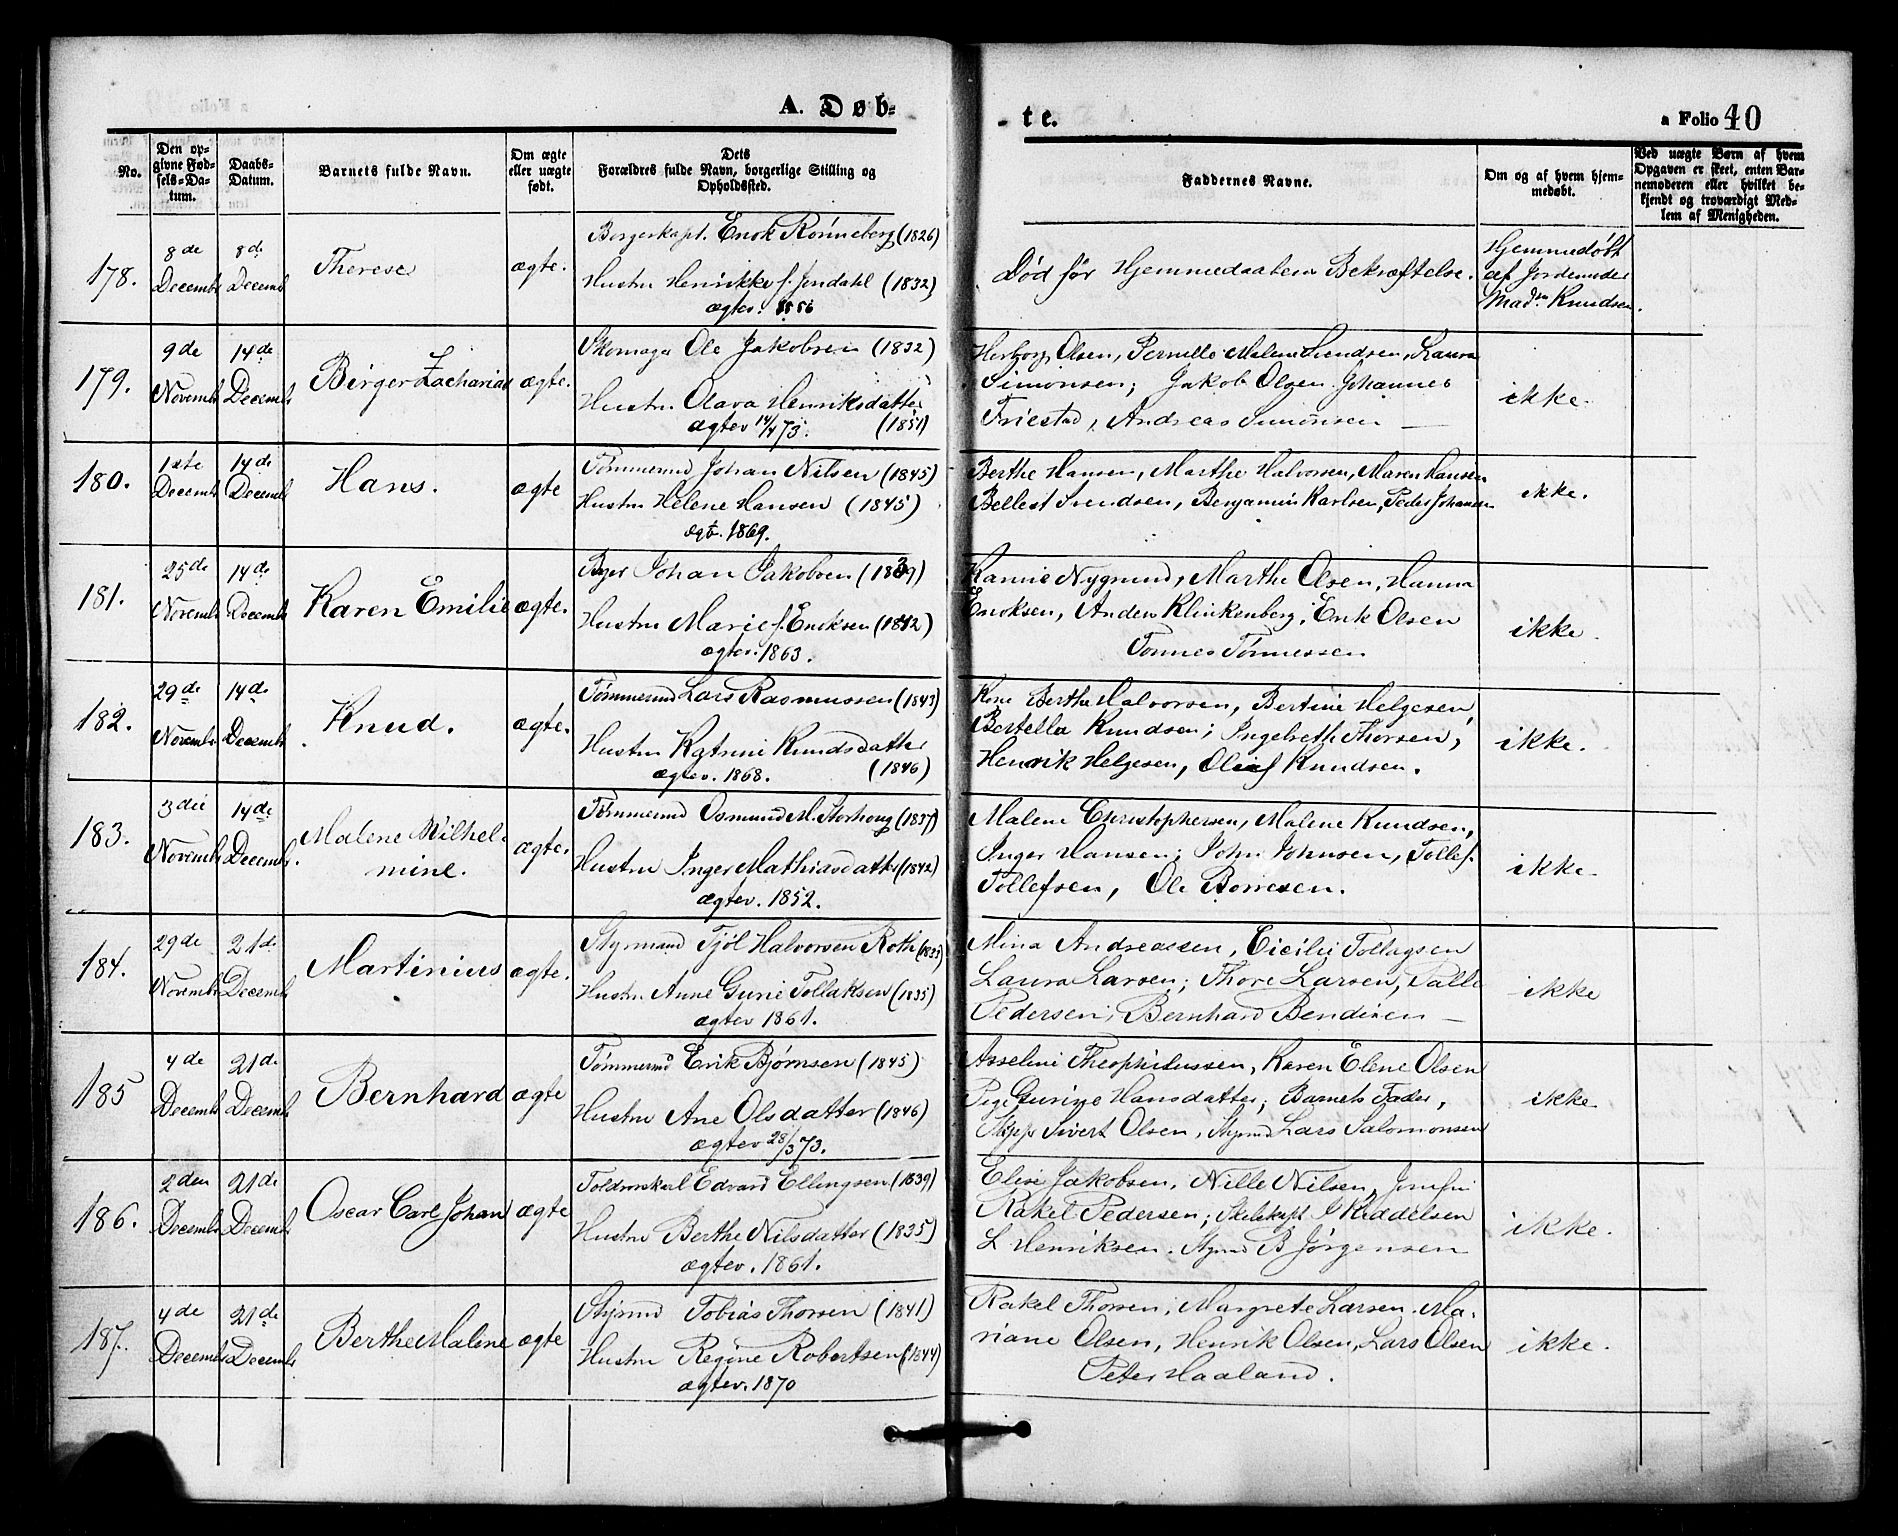 A. Døb-
te.
a Folio 40
No.
Den op-
givne Fød-
sels-Da-
tum.
Daabs-
Datum.
Barnets fulde Navn.
Om ægte
eller uægte
født.
Dets
Forældres fulde Navn, borgerlige Stilling og
Opholdssted.
Faddernes Navne.
Om og af hvem hjem-
medøbt.
Ved uægte Børn af hvem
Opgaven er skeet, enten Bar-
nemoderen eller hvilket be-
kjendt og troværdigt Med-
lem af Menigheden.
178.
8de
Decembr
8de
Decembr
Therese
ægte.
Borgerkapt. Enok Rønneberg (1826)
Hustru Henrikke f. Jendahl (1832)
ægtev. 1856
Død før Hjemmedaabens Bekræftelse.
Hjemmedøbt
af Jordemoder
Madm Knudsen.
179.
9de
Novembr
14de
Decembr
Birger Zacharias
ægte.
Skomager Ole Jakobsen (1832)
Hustru Olava Henriksdatter
ægtev 14/4 73. (1851)
Herborg Olsen, Pernille Malene Svendsen, Laura
Simonsen; Jakob Olsen, Johannes
Friestad, Andreas Simonsen
ikke.
180.
1ste
Decembr
14de
Decembr
Hans.
ægte
Tømmermd Johan Nilsen (1845)
Hustru Helene Hansen (1845)
ægt. 1869.
Berthe Hansen, Marthe Halvorsen, Maren Hansen
Bellest Svendsen, Benjamin Karlsen, Peder Johansen
ikke.
181.
25de
Novembr
14de
Decembr
Karen Emilie
ægte.
Johan Jakobsen (1839)
Hustru Marie f. Eriksen (1842)
ægtev. 1863.
Kamie Nygrund, Marthe Olsen, Hanna
Enoksen, Anders Klinkenberg, Erik Olsen
Tønnes Tønnessen
ikke.
182.
29de
Novembr
14de
Decembr
Knud.
ægte.
Tømmermd Lars Rasmussen (1843)
Hustru Katrine Knudsdatter
ægtev. 1868. (1846)
Kone Berthe Halvorsen, Bertine Helgesen,
Bertella Knudsen; Ingebreth Thorsen,
Henrik Helgesen, Oluf Knudsen.
ikke.
183.
3die
Novembr
14de
Decembr.
Malene Wilhel-
mine.
ægte.
Tømmermd Osmund M. Storhoug (1837)
Hustru Inger Mathiasdatter (1842)
ægtev. 1852.
Malene Christophersen, Malene Knudsen,
Inger Hansen; John Johnsen, Tollef
Tollefsen, Ole Borresen.
ikke.
184.
29de
Novembr
21de
Decembr
Martinius
ægte.
Styrmand Tjöl Halvorsen Roth (1835)
Hustru Anne Gurie Tollaksen (1835)
ægtev 1861.
Mina Andreassen, Cicilie Tollagsen
Laura Larsen; Thore Larsen, Palle
Pedersen, Bernhard Bendixen
ikke
185
4de
Decembr
21de
Decembr
Bernhard
ægte
Tømmermd Erik Bjørnsen (1845)
Hustru Ane Olsdatter (1846)
ægtev 28/3 73.
Asseline Theophilussen, Karen Elene Olsen
Pige Gurine Hansdatter; Barnets Fader,
Skipp Sivert Olsen, Styrmd Lars Salomonsen
ikke
186.
2den
Decembr
21de
Decembr
Oscar Carl Johan
ægte
Toldroerskarl Edvard Ellingsen (1839)
Hustru Berthe Nilsdatter (1835)
ægtev. 1861.
Elise Jakobsen, Nille Nilsen, Jomfru
Rakel Pedersen; Skibskapt J Kiddelsen
L Henriksen. Styrmd B Jørgensen
ikke.
187.
4de
Decembr
21de
Decembr
Berthe Malene
ægte
Styrmd Tobias Thorsen (1841)
Hustru Regine Robertsen (1844)
ægtev. 1870
Rakel Thorsen, Margrete Larsen, Ma-
riane Olsen, Henrik Olsen, Lars Olsen
Peter Haaland.
ikke.